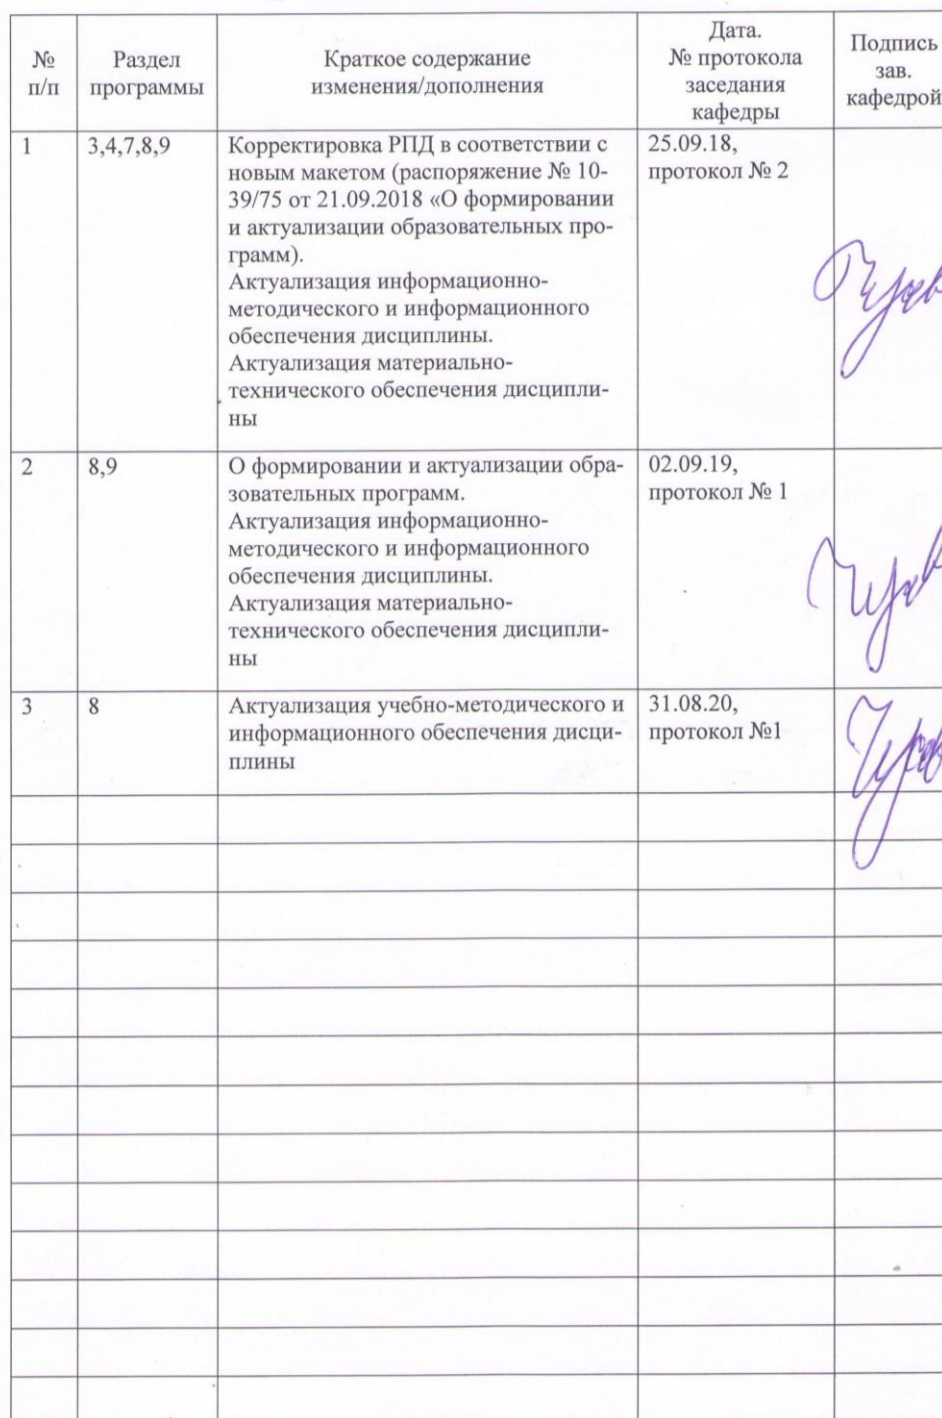 №
п/п
Раздел
программы
Краткое содержание
изменения/дополнения
Дата.
№ протокола
заседания
кафедры
Подпись
зав.
кафедрой
1
3,4,7,8,9
Корректировка РПД в соответствии с
новым макетом (распоряжение № 10-
39/75 от 21.09.2018 «О формировании
и актуализации образовательных про-
грамм).
Актуализация информационно-
методического и информационного
обеспечения дисциплины.
Актуализация материально-
технического обеспечения дисципли-
ны
25.09.18,
протокол № 2
2
8,9
О формировании и актуализации обра-
зовательных программ.
Актуализация информационно-
методического и информационного
обеспечения дисциплины.
Актуализация материально-
технического обеспечения дисципли-
ны
02.09.19,
протокол № 1
3
8
Актуализация учебно-методического и
информационного обеспечения дисци-
плины
31.08.20,
протокол №1